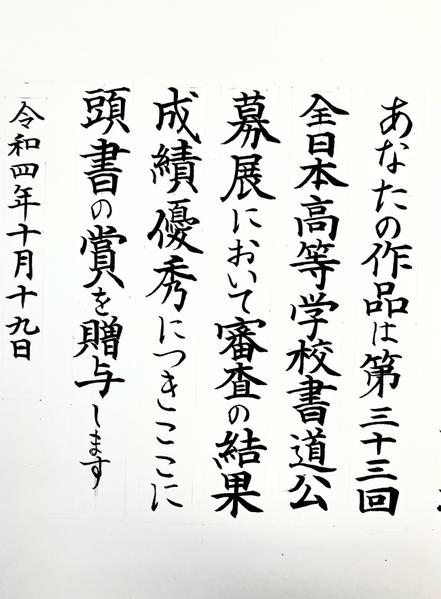 あなたの作品は第三十三回
全日本高等学校書道公
募展において審査の結果
成績優秀につきここに
頭書の賞を贈与します
令和四年十月十九日